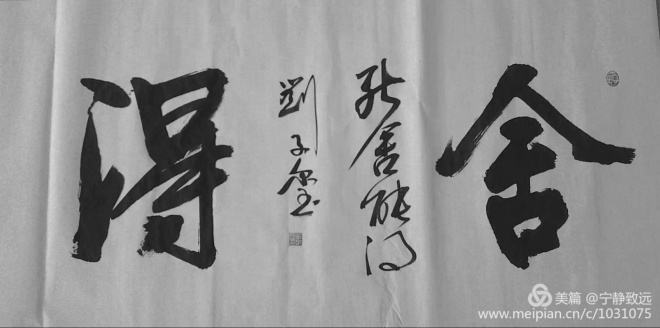 舍
能舍能得
劉子玺
得
美篇 @宁静致远
www.meipian.cn/c/1031075